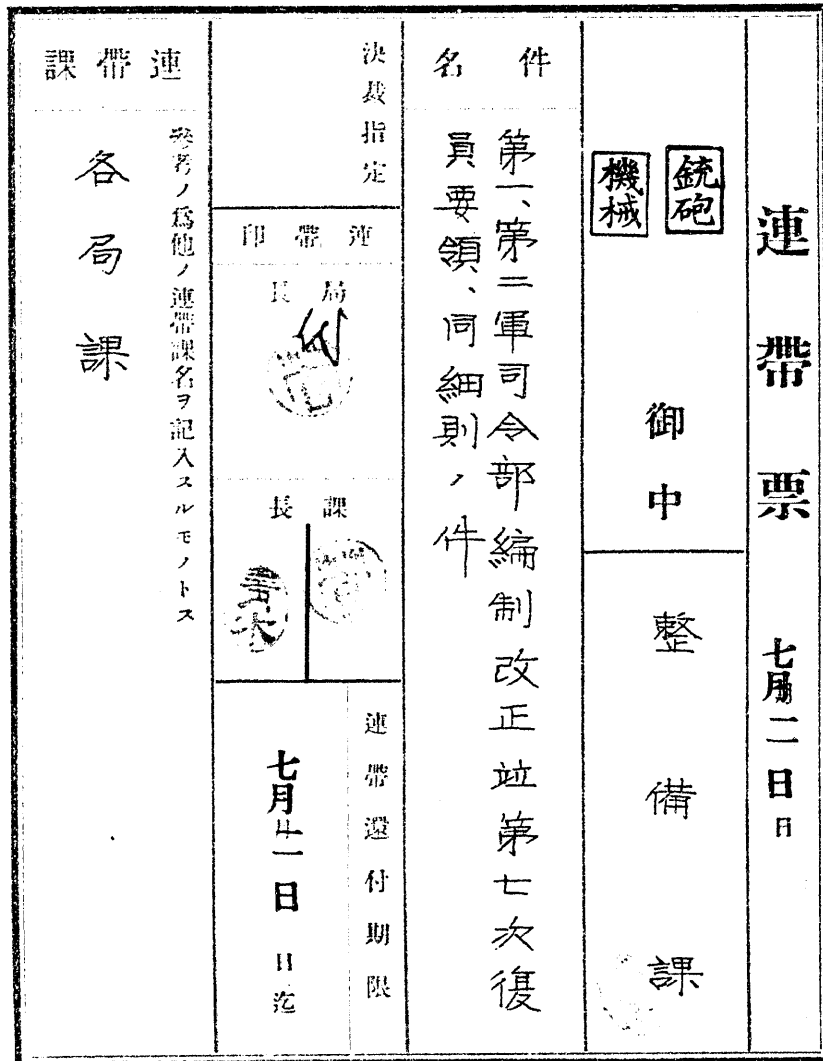 連帶票
七月二日
日
銃砲
機械
御中
整備課
件名
第一、第二軍司令部編制改正竝第七次復
員要領、同細則ノ件
決裁指定
連帶印
局長
課長
連帶還付期限
七月二日
日迄
連帶課
參考ノ爲他ノ連帶課名ヲ記入スルモノトス
各局課